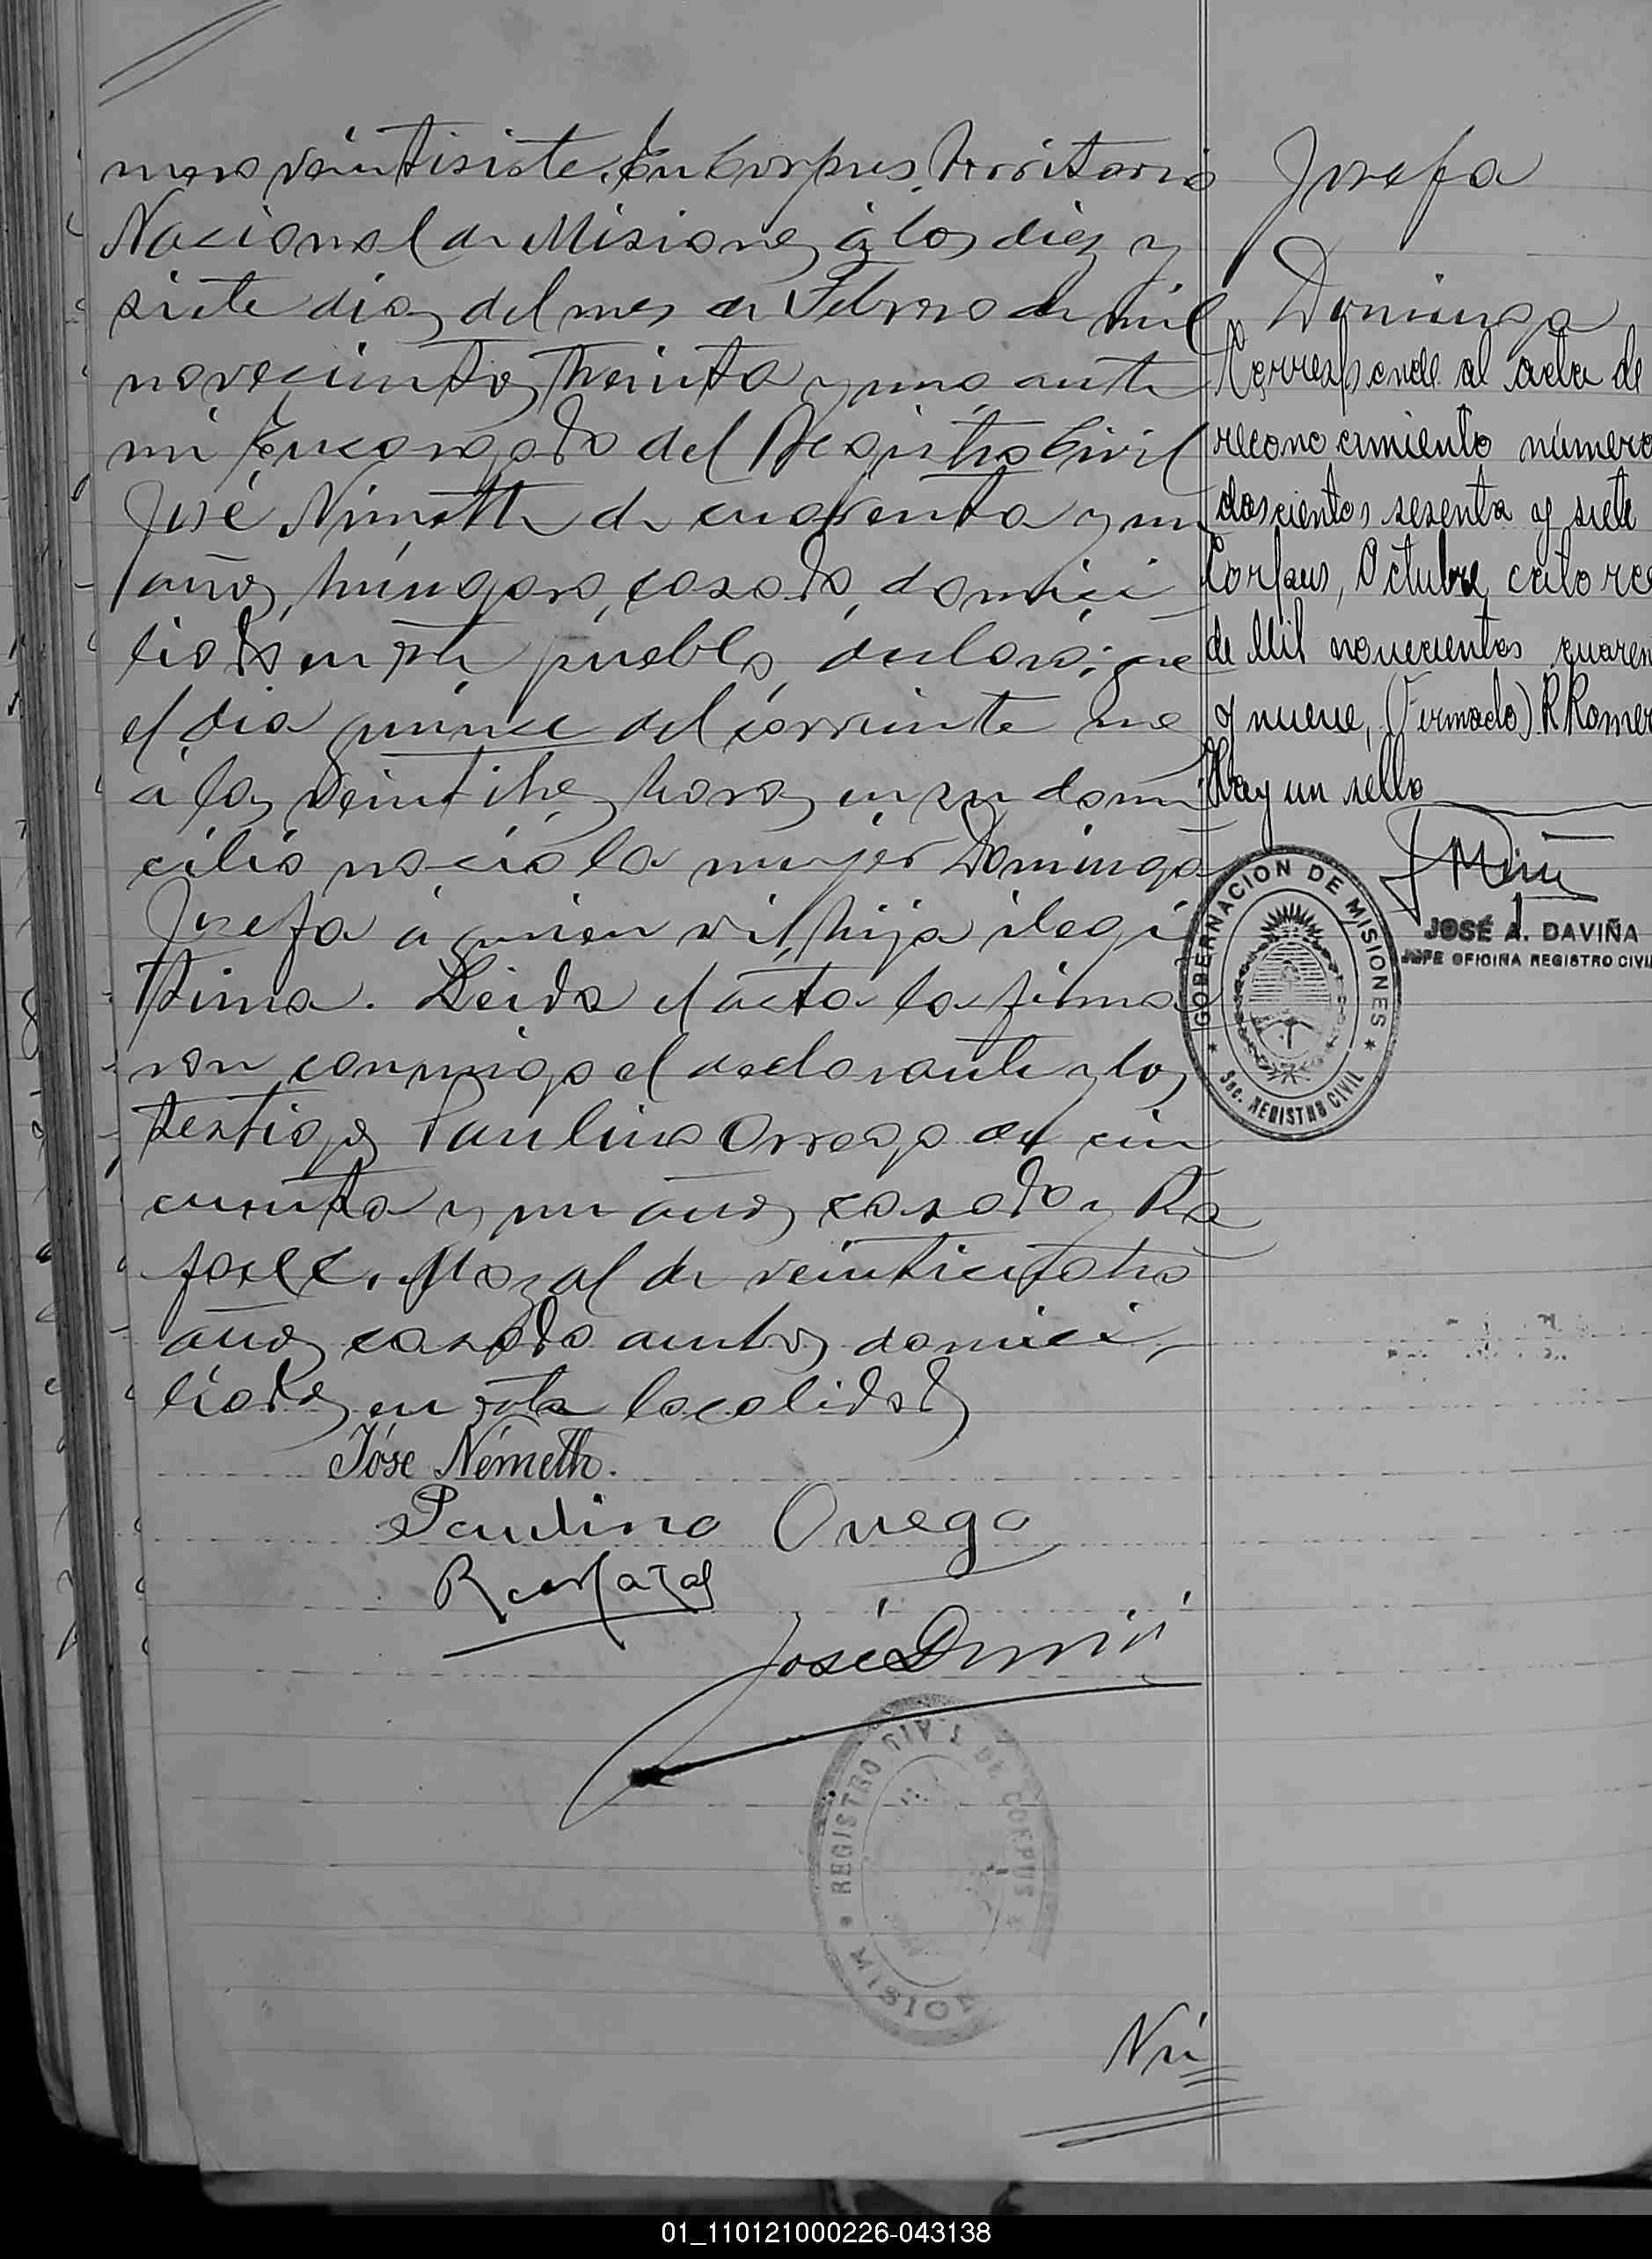 mero veintisiete. En Corpus, Territorio
Nacional de Misiones, á los diez y
siete dias del mes de Febrero de mil
novecientos treinta y uno, ante
mi Encargado del Registro Civil
José Nimeth de cuarenta y un
años, húngaro, casado, domici
liado en este pueblo, declaró: que
el dia quince del corriente mes
á las veintitres horas en su domi
cilio nació la mujer Dominga
Josefa á quien vi, hija ilegi
tima. Leida el acta la firma
ron conmigo el declarante y los
testigos Paulino Orrego de cin
cuenta y un años, casado y Ra
fael C. Mozal de veinticuatro
años, casado ambos domici
liados en esta localidad
Jóse Németh.
Paulino Orrego
José
Nú
Josefa
Dominga
Corresponde al acta de
reconocimiento número
doscientos sesenta y siete
Corpus, Octubre catorce
de Mil novecientos cuaren
y nueve, (Firmado) R Romer
Hay un sello
JOSÉ A. DAVIÑA
JEFE OFICINA REGISTRO CIVIL
GOBERNACION DE MISIONES
Sec. REGISTRO CIVIL
REGISTRO CIVIL DE CORPUS
MISION
01_110121000226-043138